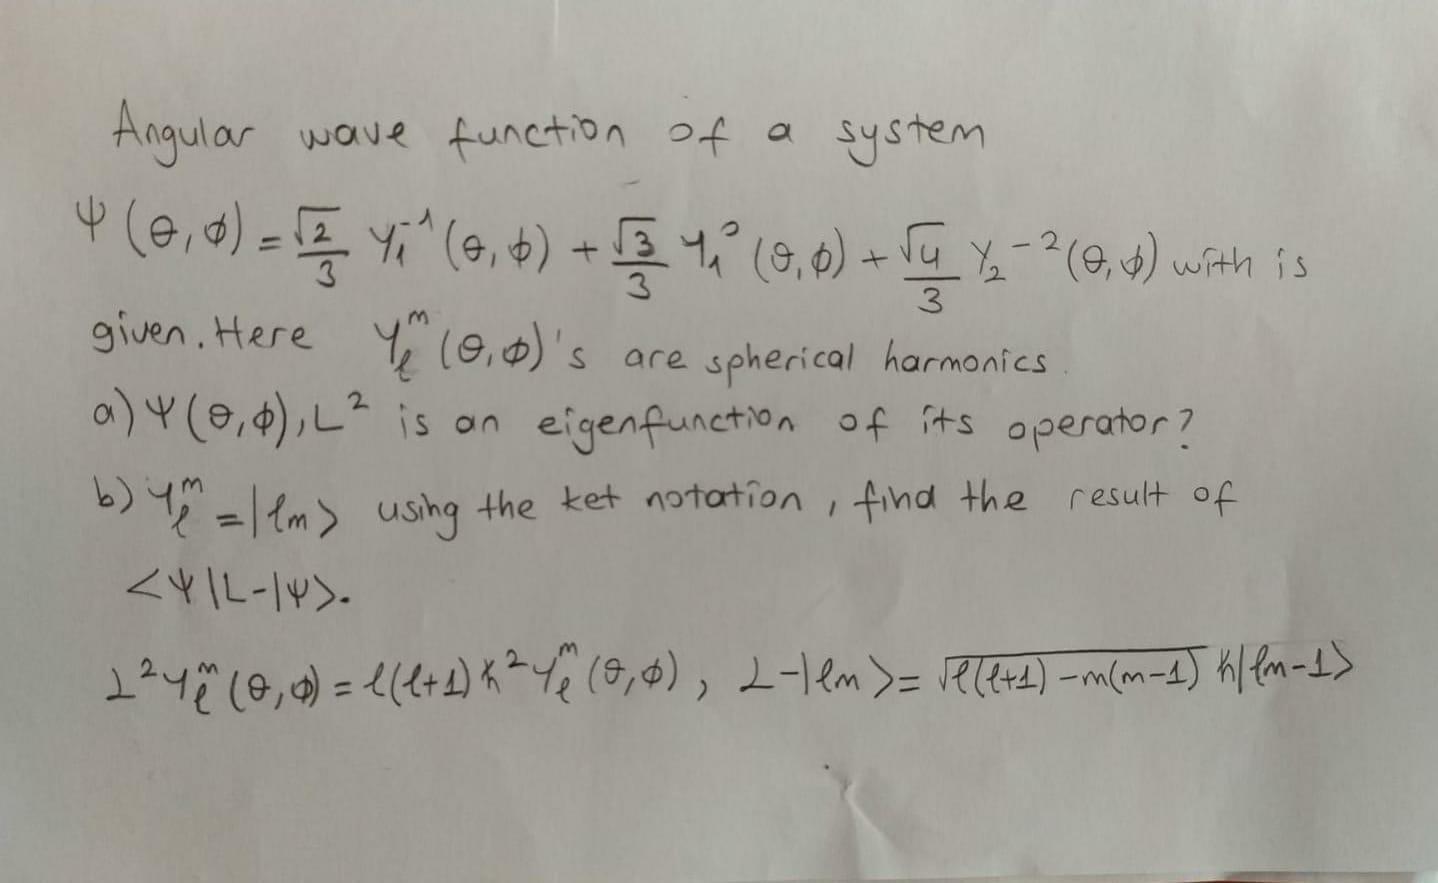 Angular wave function of a system
Ψ(θ,ϕ) = √2/3 Y₁⁻¹(θ,ϕ) + √3/3 Y₁⁰(θ,ϕ) + √4/3 Y₂⁻²(θ,ϕ) with is
given. Here Yₗᵐ(θ,ϕ)'s are spherical harmonics.
a) Ψ(θ,ϕ), L² is an eigenfunction of its operator?
b) Yₗᵐ = |ℓm> using the ket notation, find the result of
<Ψ|L-|Ψ>.
L²Yₗᵐ(θ,ϕ) = ℓ(ℓ+1)ħ²Yₗᵐ(θ,ϕ), L-|ℓm> = √(ℓ(ℓ+1)-m(m-1)) ħ|ℓm-1>